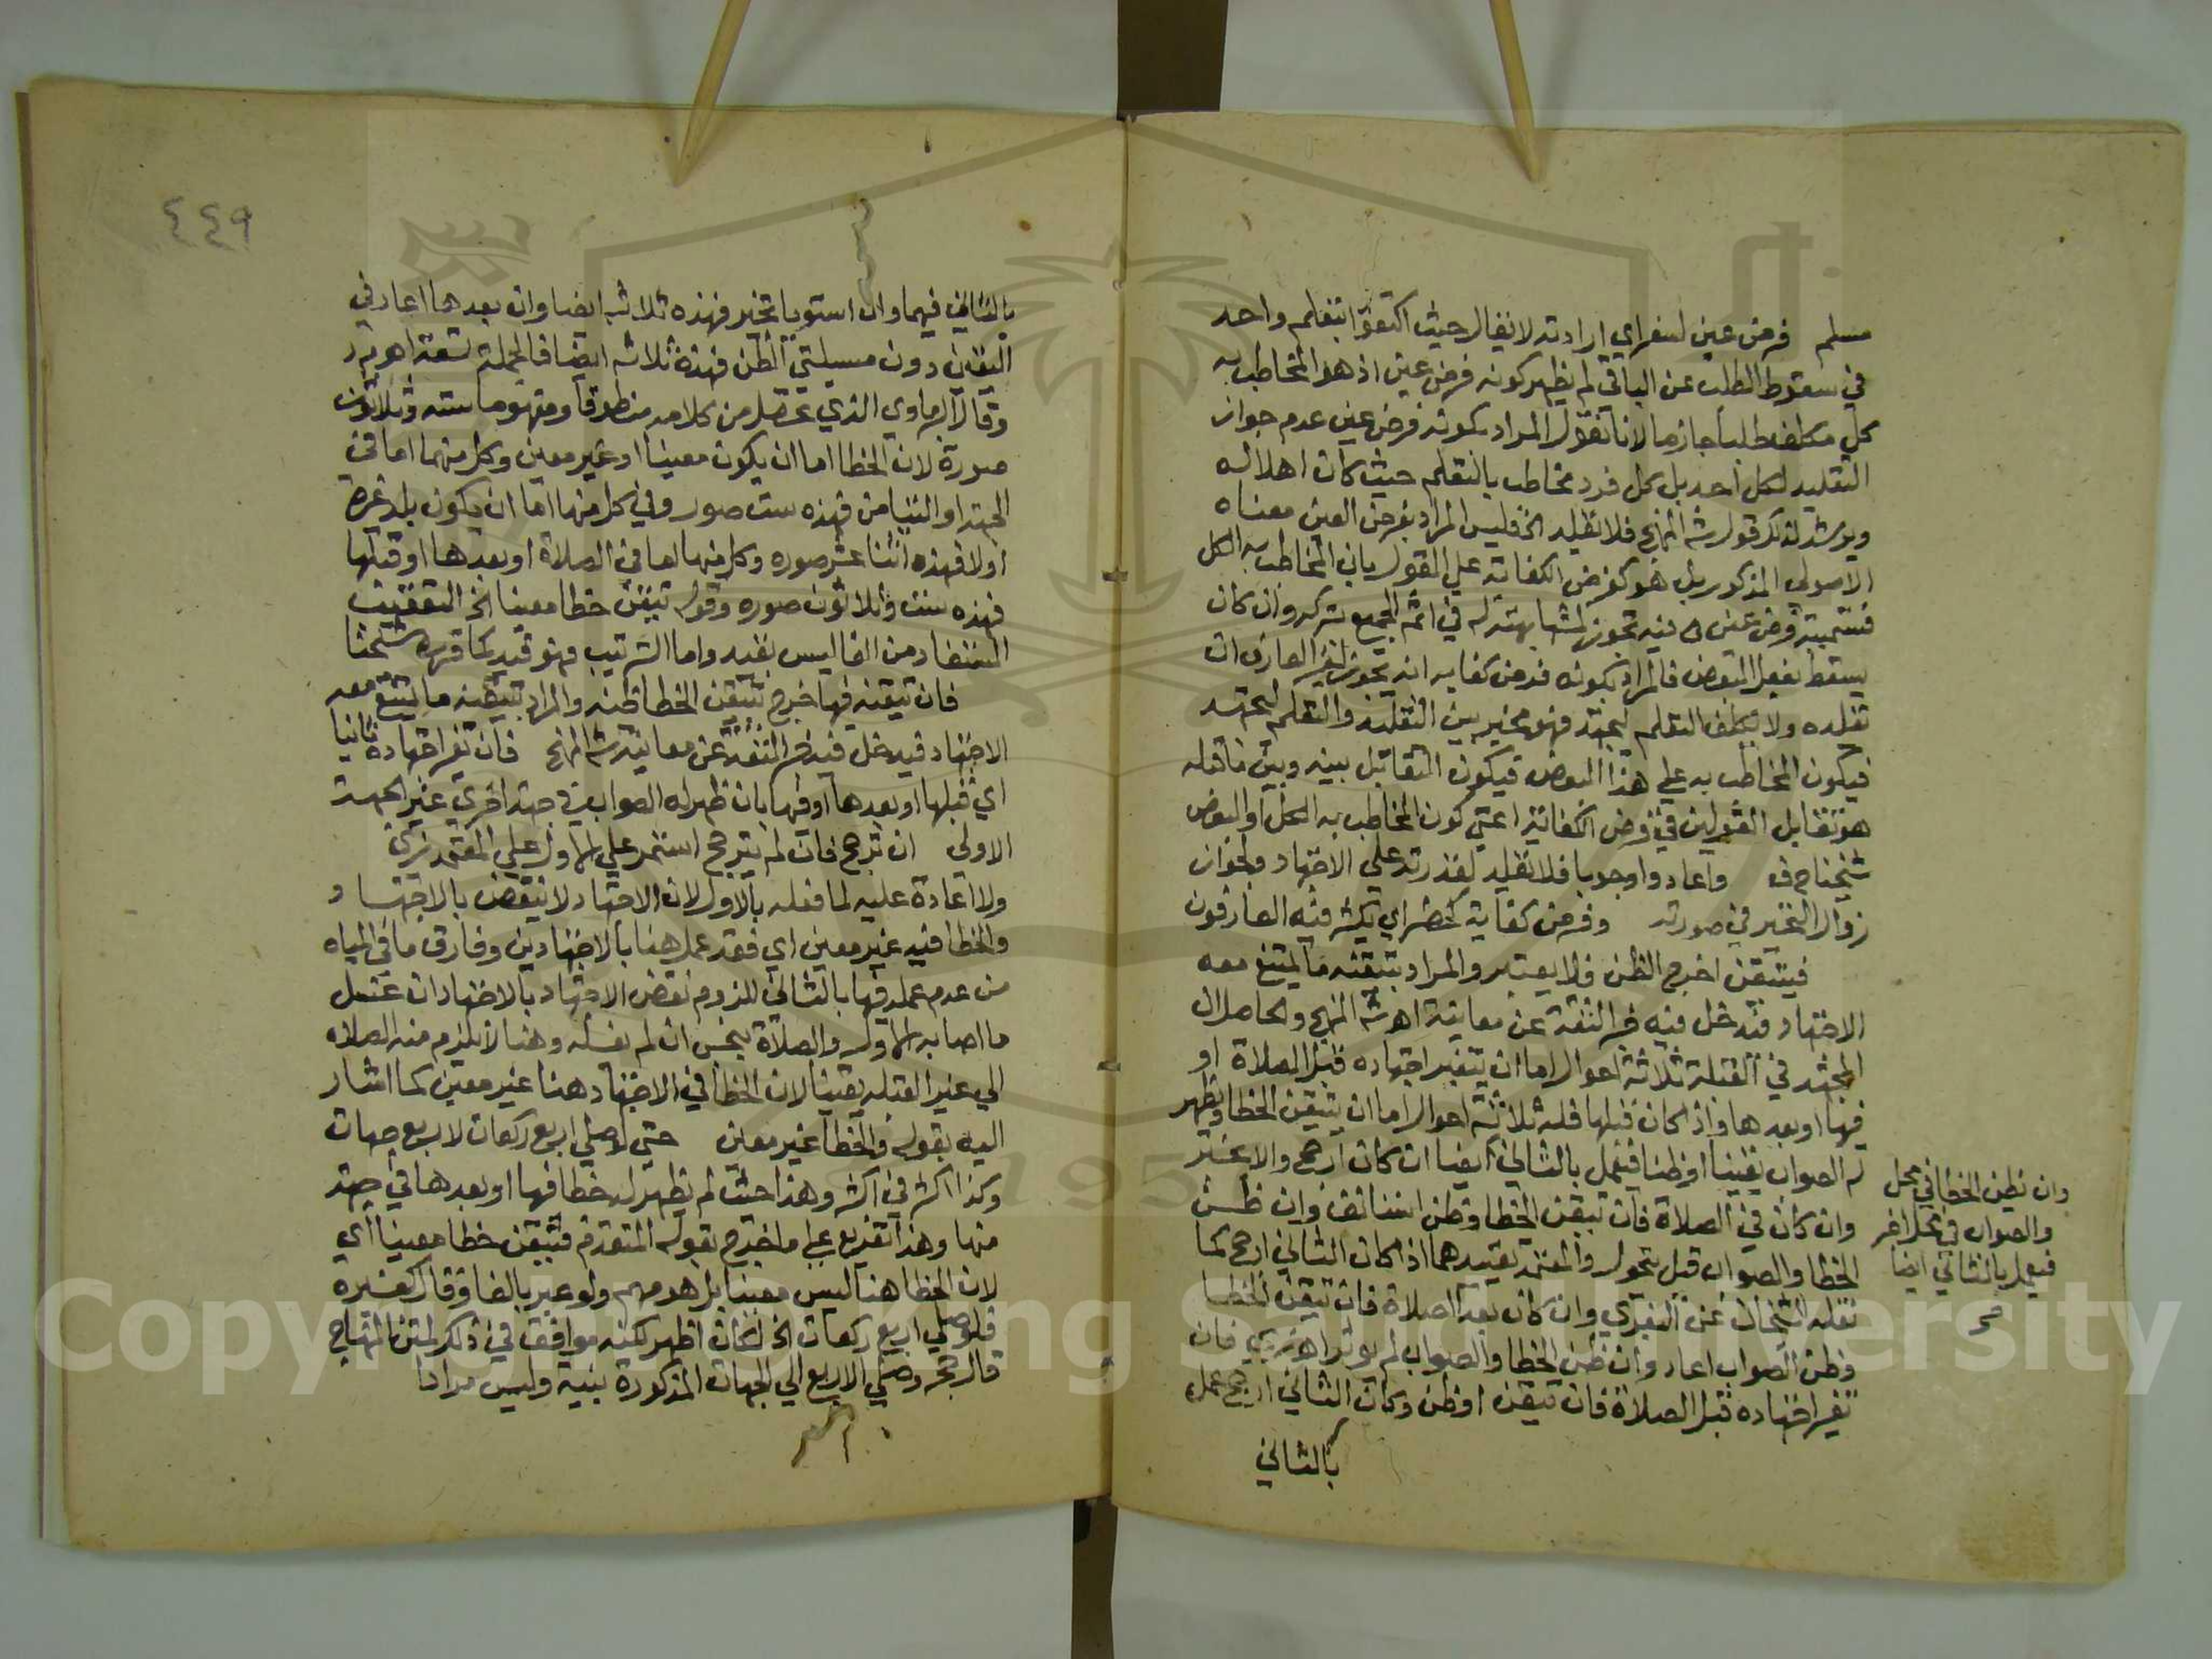 مسلم فرض عين لسفر اي ارادته لا يقال حيث اكتفوا بتعلم واحد
في سقوط الطلب عن الباقي لم يظهر كونه فرض عين اذ هو المخاطب به
كل مكلف طلبا جازما لانا نقول المراد بكونه فرض عين عدم جواز
التقليد لكل احد بل كل فرد مخاطب بالتعلم حيث كان اهلا له
ويرشد لذلك قول شه المنهج فلا تقليد الخ فليس المراد بفرض العين معناه
الاصولي المذكور بل هو كفرض الكفاية علي القول بان المخاطب به الكل
فتسميته فرض عين فيه تجوز لمشابهته له في اثم الجميع بتركه وان كان
يسقط بفعل البعض فالمراد بكونه فرض كفاية انه يجوز لغير العارف ان
تقلده ولا يكلف التعلم ليجتهد فهو مخير بين التقليد والتعلم ليجتهد
فيكون المخاطب به علي هذا البعض فيكون التقابل بينه وبين ما قبله
هو تقابل القولين في فرض الكفاية اعني كون المخاطب به الكل او البعض
شيخنا ح ف واعاد وجوبا فلا تقليد لقدرته على الاجتهاد ولجواز
زوال التحير في صورته وفرض كفاية لحضر اي يكثر فيه العارفون
فيتيقن اخرج الظن فلا يعتبر والمراد بتيقنه ما يمتنع معه
الاجتهاد فيدخل فيه خبر الثقة عن معاينة اهـ شه المنهج والحاصل ان
المجتهد في القبلة ثلاثة احوال اما ان يتغير اجتهاده قبل الصلاة او
فيها او بعدها واذا كان قبلها فله ثلاثة احوال اما ان يتيقن الخطا ويظهر
له الصواب يقينا او ظنا فيعمل بالثاني ايضا ان كان ارجح والا تخير
وان كان في الصلاة فان تيقن الخطا وظن استانف وان ظن
الخطا والصواب قيل يتحول والمعتمد تقييدهما اذا كان الثاني ارجح كما
نقله الشيخان عن البغوي وان كان بعد الصلاة فان تيقن الخطا
وظن الصواب اعاد وان ظن الخطا والصواب لم يوثر اهـ زي فان
تغير اجتهاده قبل الصلاة فان تيقن او ظن وكان الثاني ارجح عمل
بالثاني
وان يظن الخطا في محل
والصواب في محل اخر
فيعمل بالثاني ايضا
صح
٤٤٩
بالثاني فيهما وان استويا تخير فهذه ثلاثه ايضا وان بعدها اعاد في
اليقين دون مسيلتي الظن فهذه ثلاثه ايضا فالجملة تسعة اهـ م ر
وقال البرماوي الذي تحصل من كلامه منطوقا ومفهوما سته وثلاثون
صورة لان الخطا اما ان يكون معينا او غير معين وكل منهما اما في
الجهة او التيامن فهذه ست صور وفي كل منها اما ان يكون
اولا فهذه اثنا عشر صوره وكل منها اما في الصلاة او بعدها او قبلها
فهذه ست وثلاثون صوره وقوله تيقن خطا معينا الخ التعقيب
المستفاد من الفا ليس بقيد واما الترتيب فهو قيد كما قرره شيخنا
فان تيقنه فيها خرج بتيقن الخطا ظنه والمراد بتيقنه ما يمتنع معه
الاجتهاد فيدخل فيه خبر الثقة عن معاينة شه المنهج فان تغير اجتهاده ثانيا
اي قبلها او بعدها او فيها بان ظهر له الصواب في جهة اخرى غير الجهة
الاولى ان ترجح فان لم يترجح استمر على الاول علي المعتمد زي
ولا اعادة عليه لما فعله بالاول لان الاجتهاد لا ينقض بالاجتهاد
والخطا فيه غير معين اي فقد عمل هنا بالاجتهادين وفارق ما في المياه
من عدم عمله فيها بالثاني للزوم نقض الاجتهاد بالاجتهاد ان غسل
ما اصابه الاول والصلاة بنجس ان لم يغسله وهنا لا يلزم منه الصلاة
الي غير القبله يقينا لان الخطا في الاجتهاد هنا غير معين كما اشار
اليه بقوله والخطا غير معين حتى لو صلي اربع ركعات لاربع جهات
وكذا اكثر في اكثر وهذا حيث لم يظهر له خطا فيها او بعدها في جهة
منها وهذا تفريع علي ما خرج بقوله المتقدم فتيقن خطا معينا اي
لان الخطا هنا ليس معينا بل هو مبهم ولو عبر بالفا وقال كغيره
فلو صلي اربع ركعات الخ لكان اظهر لكنه موافق في ذلك لمتن المنهاج
قال حجر وصلي الاربع الي الجهات المذكورة بنية وليس مرادا